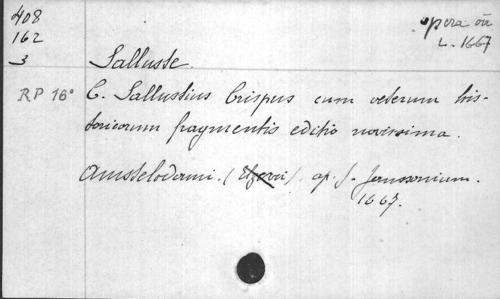 408
162
3
opera oïi
L. 1667
Salluste.
RP 16°
C. Sallustius Crispus cum veterum his-
toricorum fragmentis editio novissima.
Amstelodami. (Elzevir). ap. J. Janssonium.
1667.